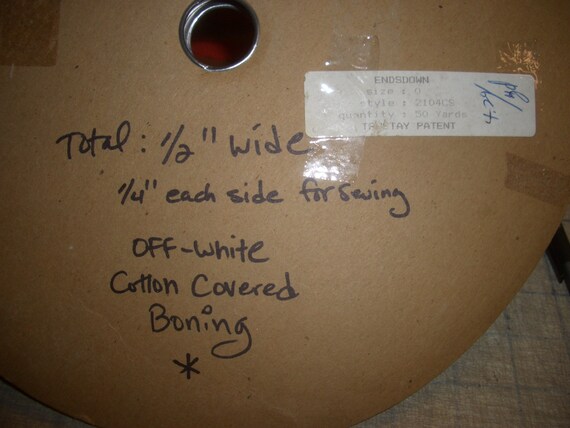 ENDSDOWN
size : 0
style : 2104CS
quantity : 50 Yards
PATENT
Total : 1/2" wide
1/4" each side for sewing
OFF-White
Cotton Covered
Boning
*